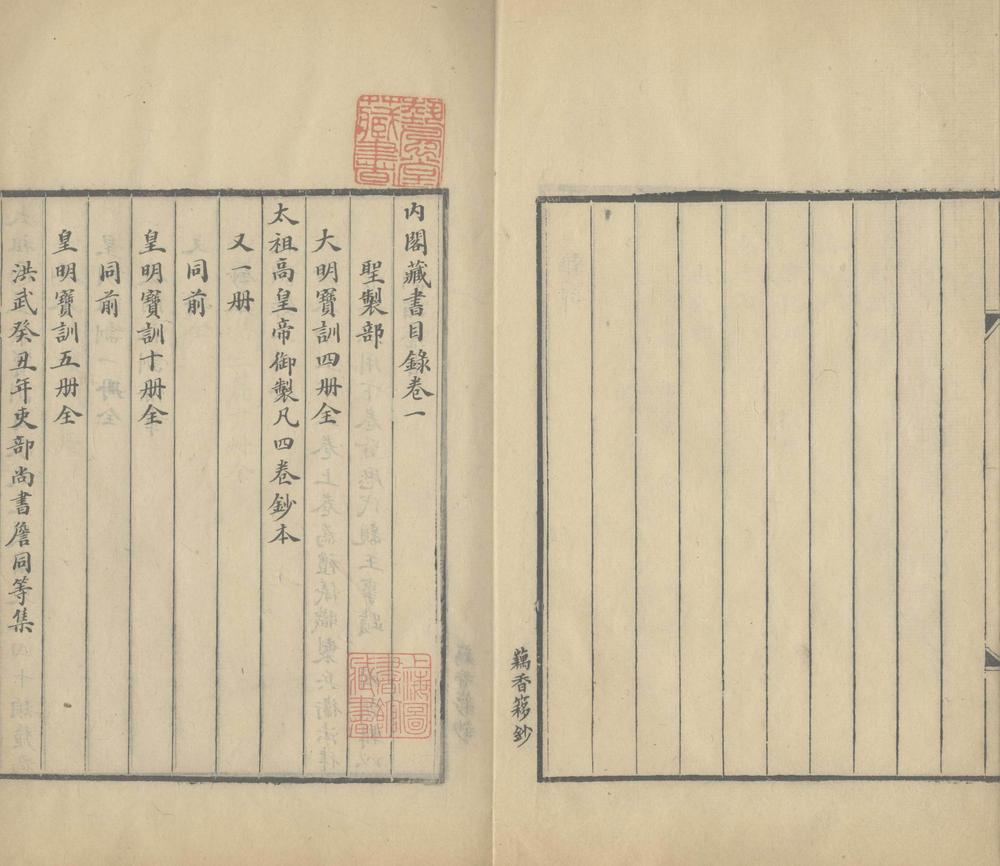 藕香簃鈔
藝風堂藏書
内閣藏書目錄卷一
聖製部
大明寶訓四册全
太祖高皇帝御製凡四卷鈔本
又一册
同前
皇明寶訓十册全
同前
皇明寶訓五册全
洪武癸丑年吏部尚書詹同等集
上海圖書館藏書